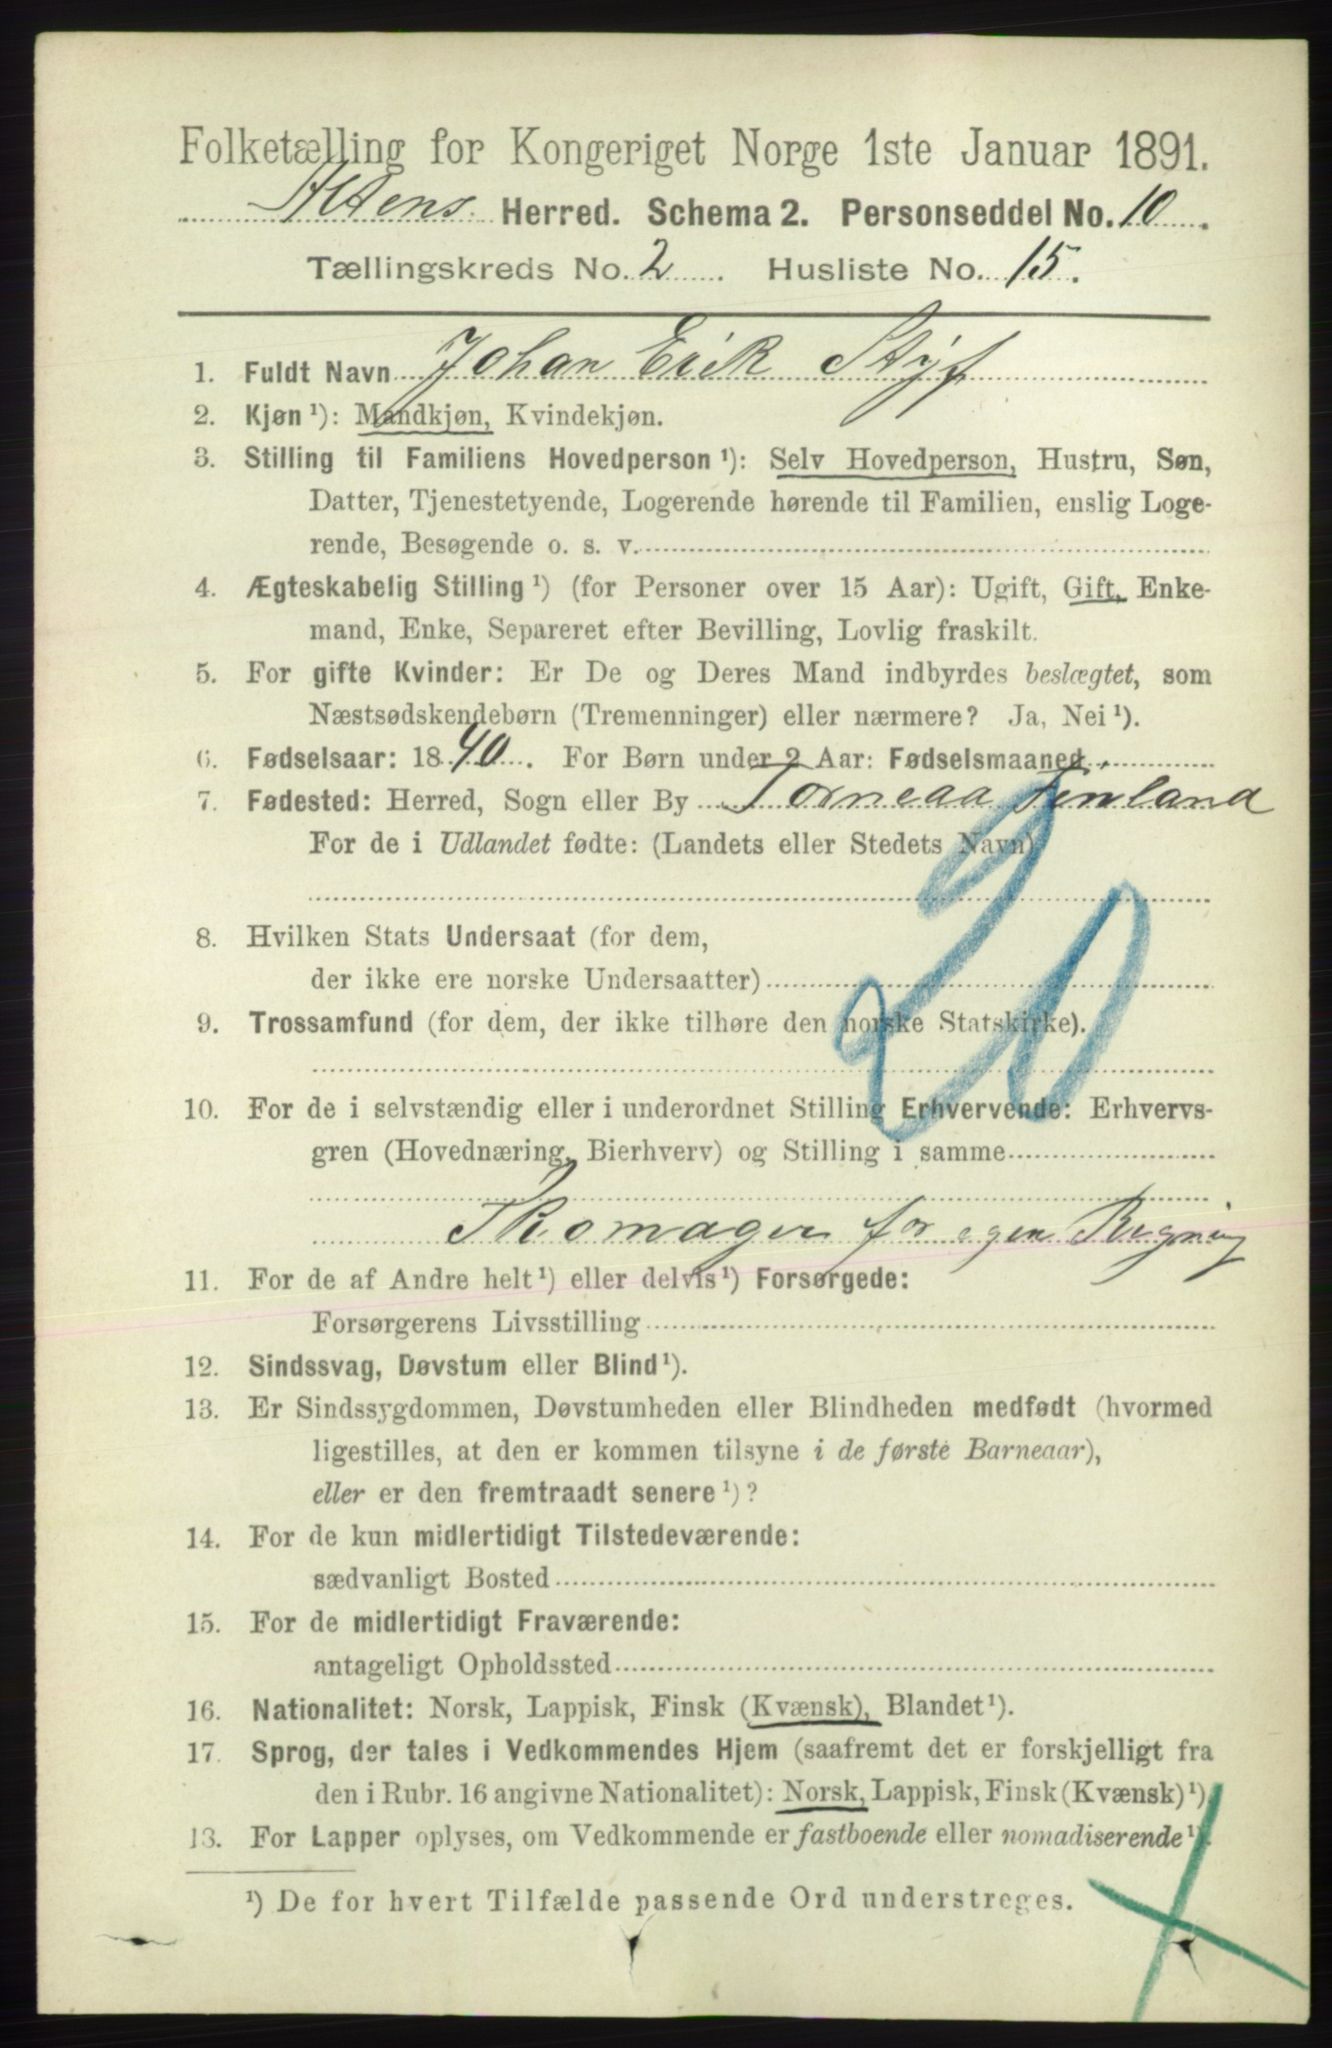 Folketælling for Kongeriget Norge 1ste Januar 1891.
Altens Herred. Schema 2. Personseddel No. 10.
Tællingskreds No. 2. Husliste No. 15.
1. Fuldt Navn Johan Erik Styf
2. Kjøn ¹): Mandkjøn, Kvindekjøn.
3. Stilling til Familiens Hovedperson ¹): Selv Hovedperson, Hustru, Søn,
Datter, Tjenestetyende, Logerende hørende til Familien, enslig Loge-
rende, Besøgende o. s. v.
4. Ægteskabelig Stilling ¹) (for Personer over 15 Aar): Ugift, Gift, Enke-
mand, Enke, Separeret efter Bevilling, Lovlig fraskilt.
5. For gifte Kvinder: Er De og Deres Mand indbyrdes beslægtet, som
Næstsødskendebørn (Tremenninger) eller nærmere? Ja, Nei ¹).
6. Fødselsaar: 1840. For Børn under 2 Aar: Fødselsmaaned:
7. Fødested: Herred, Sogn eller By Torneaa Finland
For de i Udlandet fødte: (Landets eller Stedets Navn)
20
8. Hvilken Stats Undersaat (for dem,
der ikke ere norske Undersaatter)
9. Trossamfund (for dem, der ikke tilhøre den norske Statskirke).
10. For de i selvstændig eller i underordnet Stilling Erhvervende: Erhvervs-
gren (Hovednæring, Bierhverv) og Stilling i samme
Skomager for egen Regning
11. For de af Andre helt ¹) eller delvis ¹) Forsørgede:
Forsørgerens Livsstilling
12. Sindssvag, Døvstum eller Blind ¹).
13. Er Sindssygdommen, Døvstumheden eller Blindheden medfødt (hvormed
ligestilles, at den er kommen tilsyne i de første Barneaar),
eller er den fremtraadt senere ¹)?
14. For de kun midlertidigt Tilstedeværende:
sædvanligt Bosted
15. For de midlertidigt Fraværende:
antageligt Opholdssted
16. Nationalitet: Norsk, Lappisk, Finsk (Kvænsk), Blandet ¹).
17. Sprog, der tales i Vedkommendes Hjem (saafremt det er forskjelligt fra
den i Rubr. 16 angivne Nationalitet): Norsk, Lappisk, Finsk (Kvænsk) ¹).
13. For Lapper oplyses, om Vedkommende er fastboende eller nomadiserende ¹).
¹) De for hvert Tilfælde passende Ord understreges.